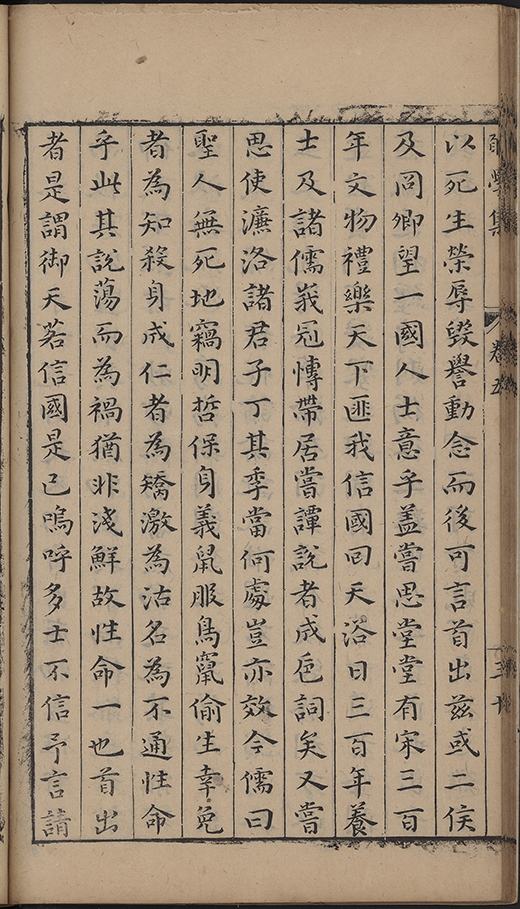 集 卷五 三十
以死生榮辱毀譽動念而後可言首出茲或二侯
及同卿望一國人士意乎盖嘗思堂堂有宋三百
年文物禮樂天下匪我信國回天浴日三百年養
士及諸儒峩冠慱帶居嘗譚說者成巵詞矣又嘗
思使濂洛諸君子丁其季當何處豈亦效今儒曰
聖人無死地竊明哲保身義鼠服鳥竄偷生幸免
者為知殺身成仁者為矯激為沽名為不通性命
乎此其說蕩而為禍猶非淺鮮故性命一也首出
者是謂御天若信國是已嗚呼多士不信予言請